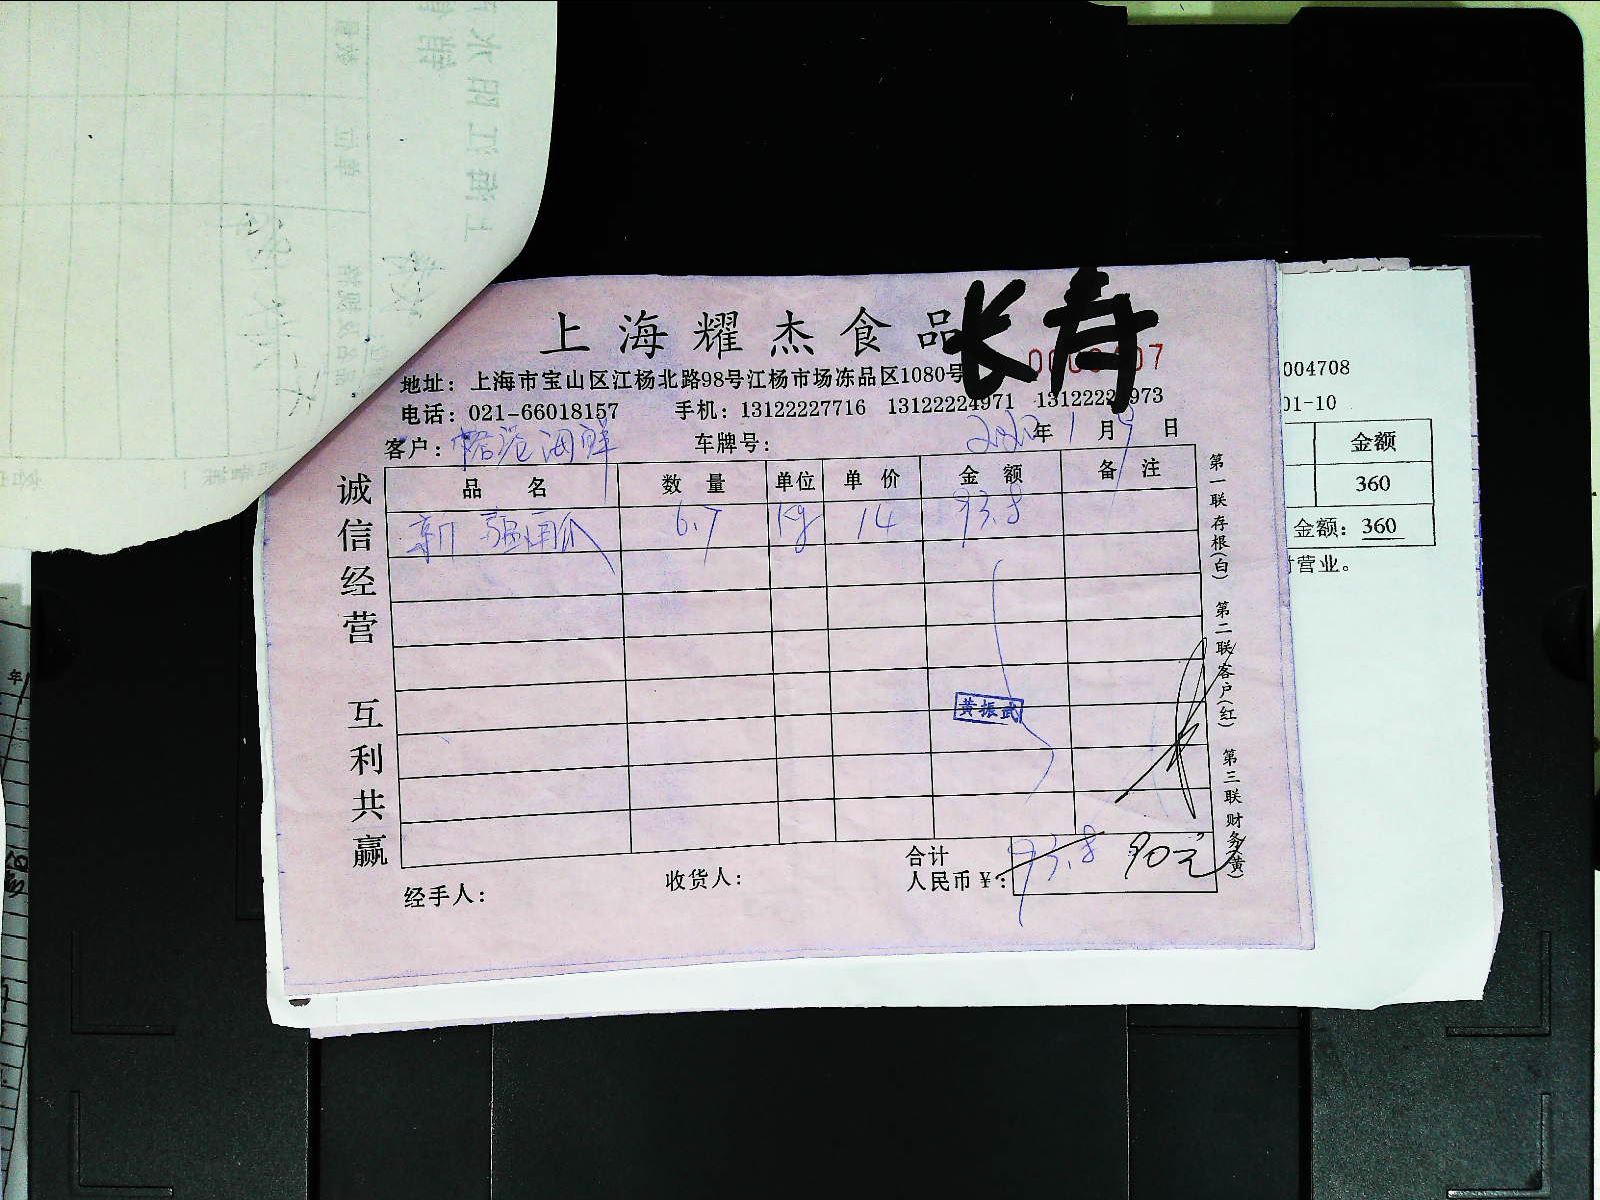 上海耀杰食品
长寿
地址：上海市宝山区江杨北路98号江杨市场冻品区1080号
电话：021-66018157 手机：13122227716 13122224971
客户： 海鲜 车牌号： 年 1 月 9 日
品名 数量 单位 单价 金额 备注
新疆 6.7 Kg 14 93.8
黄振武
合计
人民币￥： 93.8 90元
经手人： 收货人：
诚信经营 互利共赢
第一联存根(白) 第二联客户(红) 第三联财务(黄)
004708
01-10
金额
360
金额：360
营业。